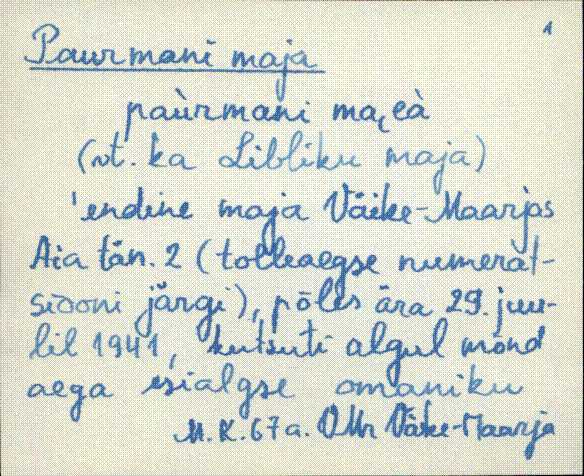 1
Paurmani maja
paùrmani ma,eà
(vt. ka Libliku maja)
'endine maja Väike-Maarjas
Aia tän. 2 (tolleaegse numerat-
siooni järgi), põles ära 29. juu-
lil 1941, kutsuti algul mõnd
aega esialgse omaniku
M.K. 67 a. VMr Väike-Maarja